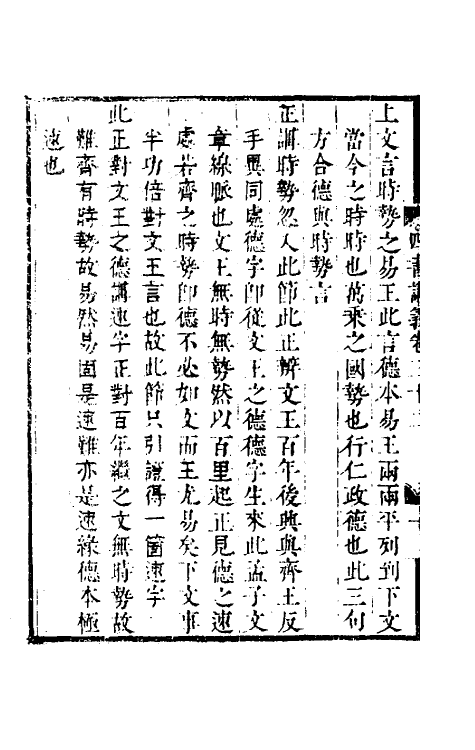 上文言時勢之易王此言德本易王兩兩平列到下文
當今之時時也萬乘之國勢也行仁政德也此三句
方合德與時勢言
正講時勢忽入此節此正辨文王百年後興與齊王反
手異同處德字卽從文王之德德字生來此孟子文
章線脈也文王無時無勢然以百里起正見德之速
處若齊之時勢卽德不必如文而王尤易矣下文事
半功倍對文王言也故此節只引證得一箇速字
此正對文王之德講速字正對百年繼之文無時勢故
難齊有時勢故易然易固是速難亦是速緣德本極
速也
四書講義卷三十二